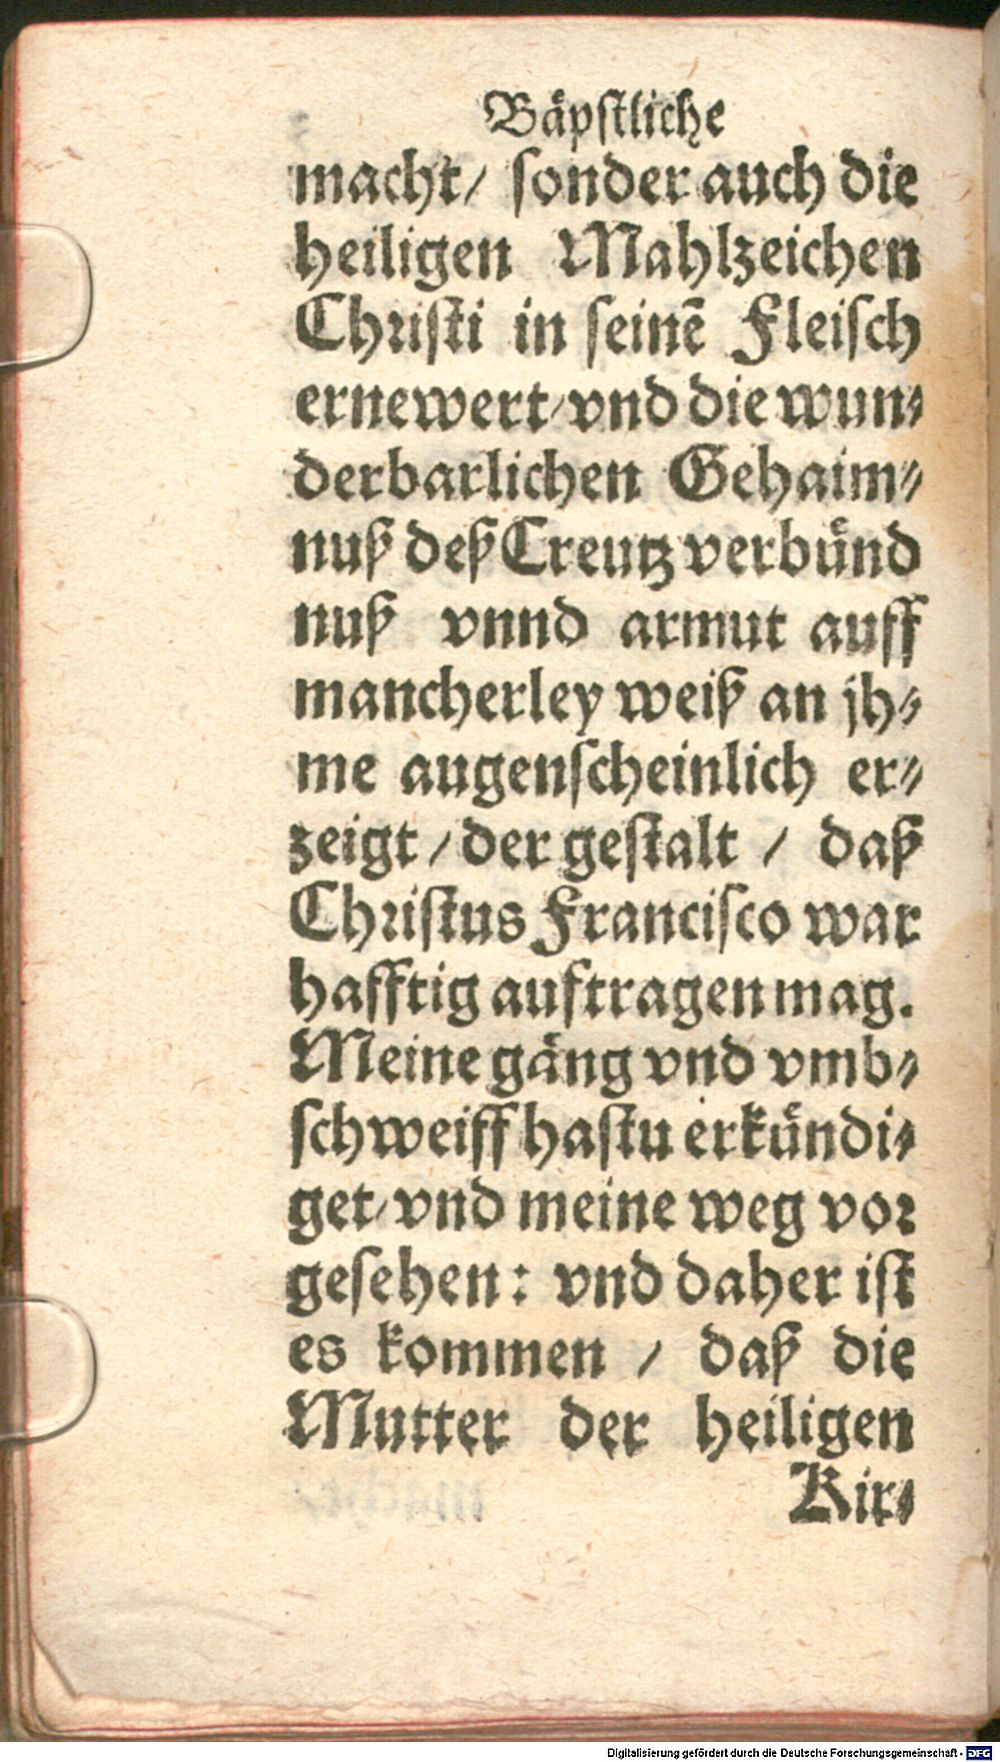 Bäpstliche
macht/ sonder auch die
heiligen Mahlzeichen
Christi in seinē Fleisch
ernewert/vnd die wun⸗
derbarlichen Gehaim⸗
nuß deß Creutz verbünd
nuß vnnd armut auff
mancherley weiß an jh⸗
me augenscheinlich er⸗
zeigt/ der gestalt / daß
Christus Francisco war
hafftig auftragen mag.
Meine gäng vnd vmb⸗
schweiff hastu erkündi⸗
get/vnd meine weg vor
gesehen: vnd daher ist
es kommen / daß die
Mutter der heiligen
Kir⸗
Digitalisierung gefördert durch die Deutsche Forschungsgemeinschaft - DFG